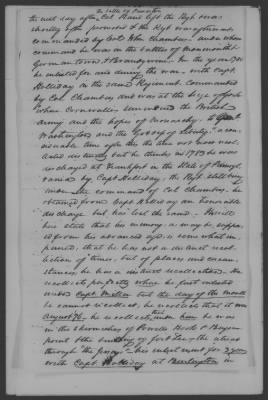 the Battle of Princeton
the next day after Col Hand left the Regt was
shortly after promoted & the Regt was afterwards
commanded by Col John Chambers, and under whose
command he was in the battles of Monmouth
Germantown & Brandywine. In the year 1781
he enlisted for and during the war, with Capt
Holliday in the same Regiment Commanded
by Col Chambers and was at the siege of York
when Cornwallis surrendered the British
army and the hopes of monarchy to
Washington and the Genius of liberty. a con-
siderable time after this the war not been
but he thinks in 1783 he was
discharged at Frankfort in the State of Pennsyl-
vania by Capt Holliday, the Regt still being
under the command of Col Chambers. he
obtained from Capt Holliday an honorable
discharge but has lost the same.
here state that his memory as may be expec-
ted from his advanced age is somewhat im-
paired, that he has not a distinct recol-
lection of times, but of places and circum-
stances, he has a distinct recollection. He
recollects perfectly when he first enlisted
under Capt Miller but the day of the month
he cannot recollect, he recollects that it was
August 76. he recollects that under him he was
in the skirmishes of Powells Hook & Bergen
point & the burning of fort Lee, & the retreat
through the Jerseys his enlistment for 3 years
with Capt Holliday at Burlington in